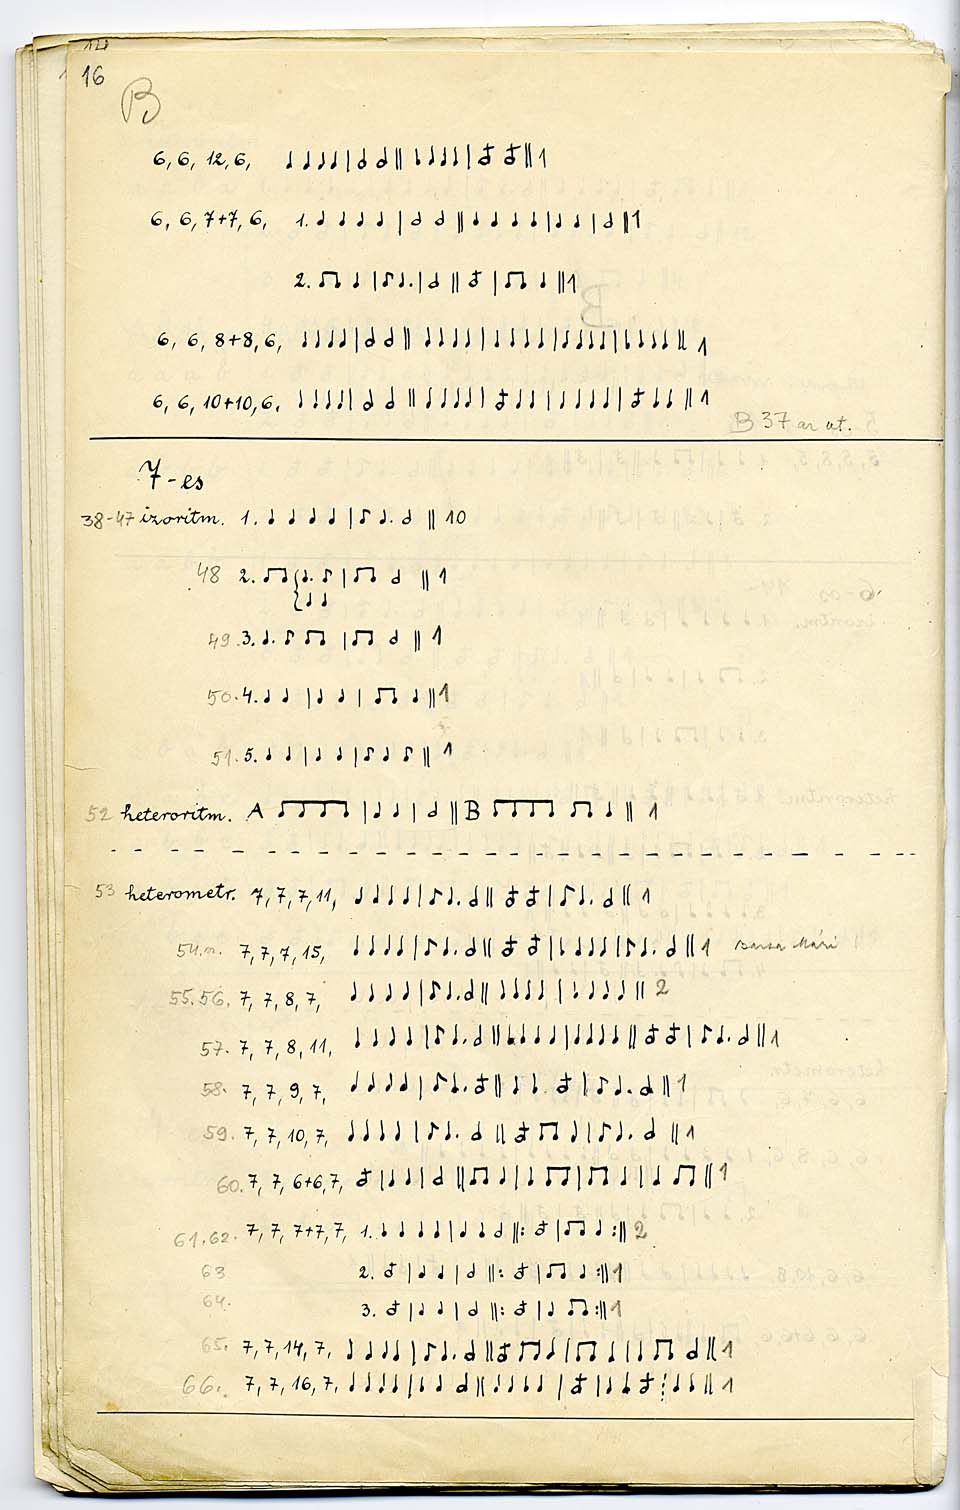 16
B
6, 6, 12, 6, 1
6, 6, 7+7, 6, 1. 1
2. 1
6, 6, 8+8, 6, 1
6, 6, 10+10, 6, 1
B 37 ar ut.
7-es
38-47 izoritm. 1. 10
48 2. 1
49. 3. 1
50. 4. 1
51. 5. 1
52 heteroritm. A B 1
53 heterometr. 7, 7, 7, 11, 1
54. 7, 7, 7, 15, 1
55. 56. 7, 7, 8, 7, 2
57. 7, 7, 8, 11, 1
58. 7, 7, 9, 7, 1
59. 7, 7, 10, 7, 1
60. 7, 7, 6+6, 7, 1
61. 62. 7, 7, 7+7, 7, 1. 2
63 2. 1
64. 3. 1
65. 7, 7, 14, 7, 1
66. 7, 7, 16, 7, 1